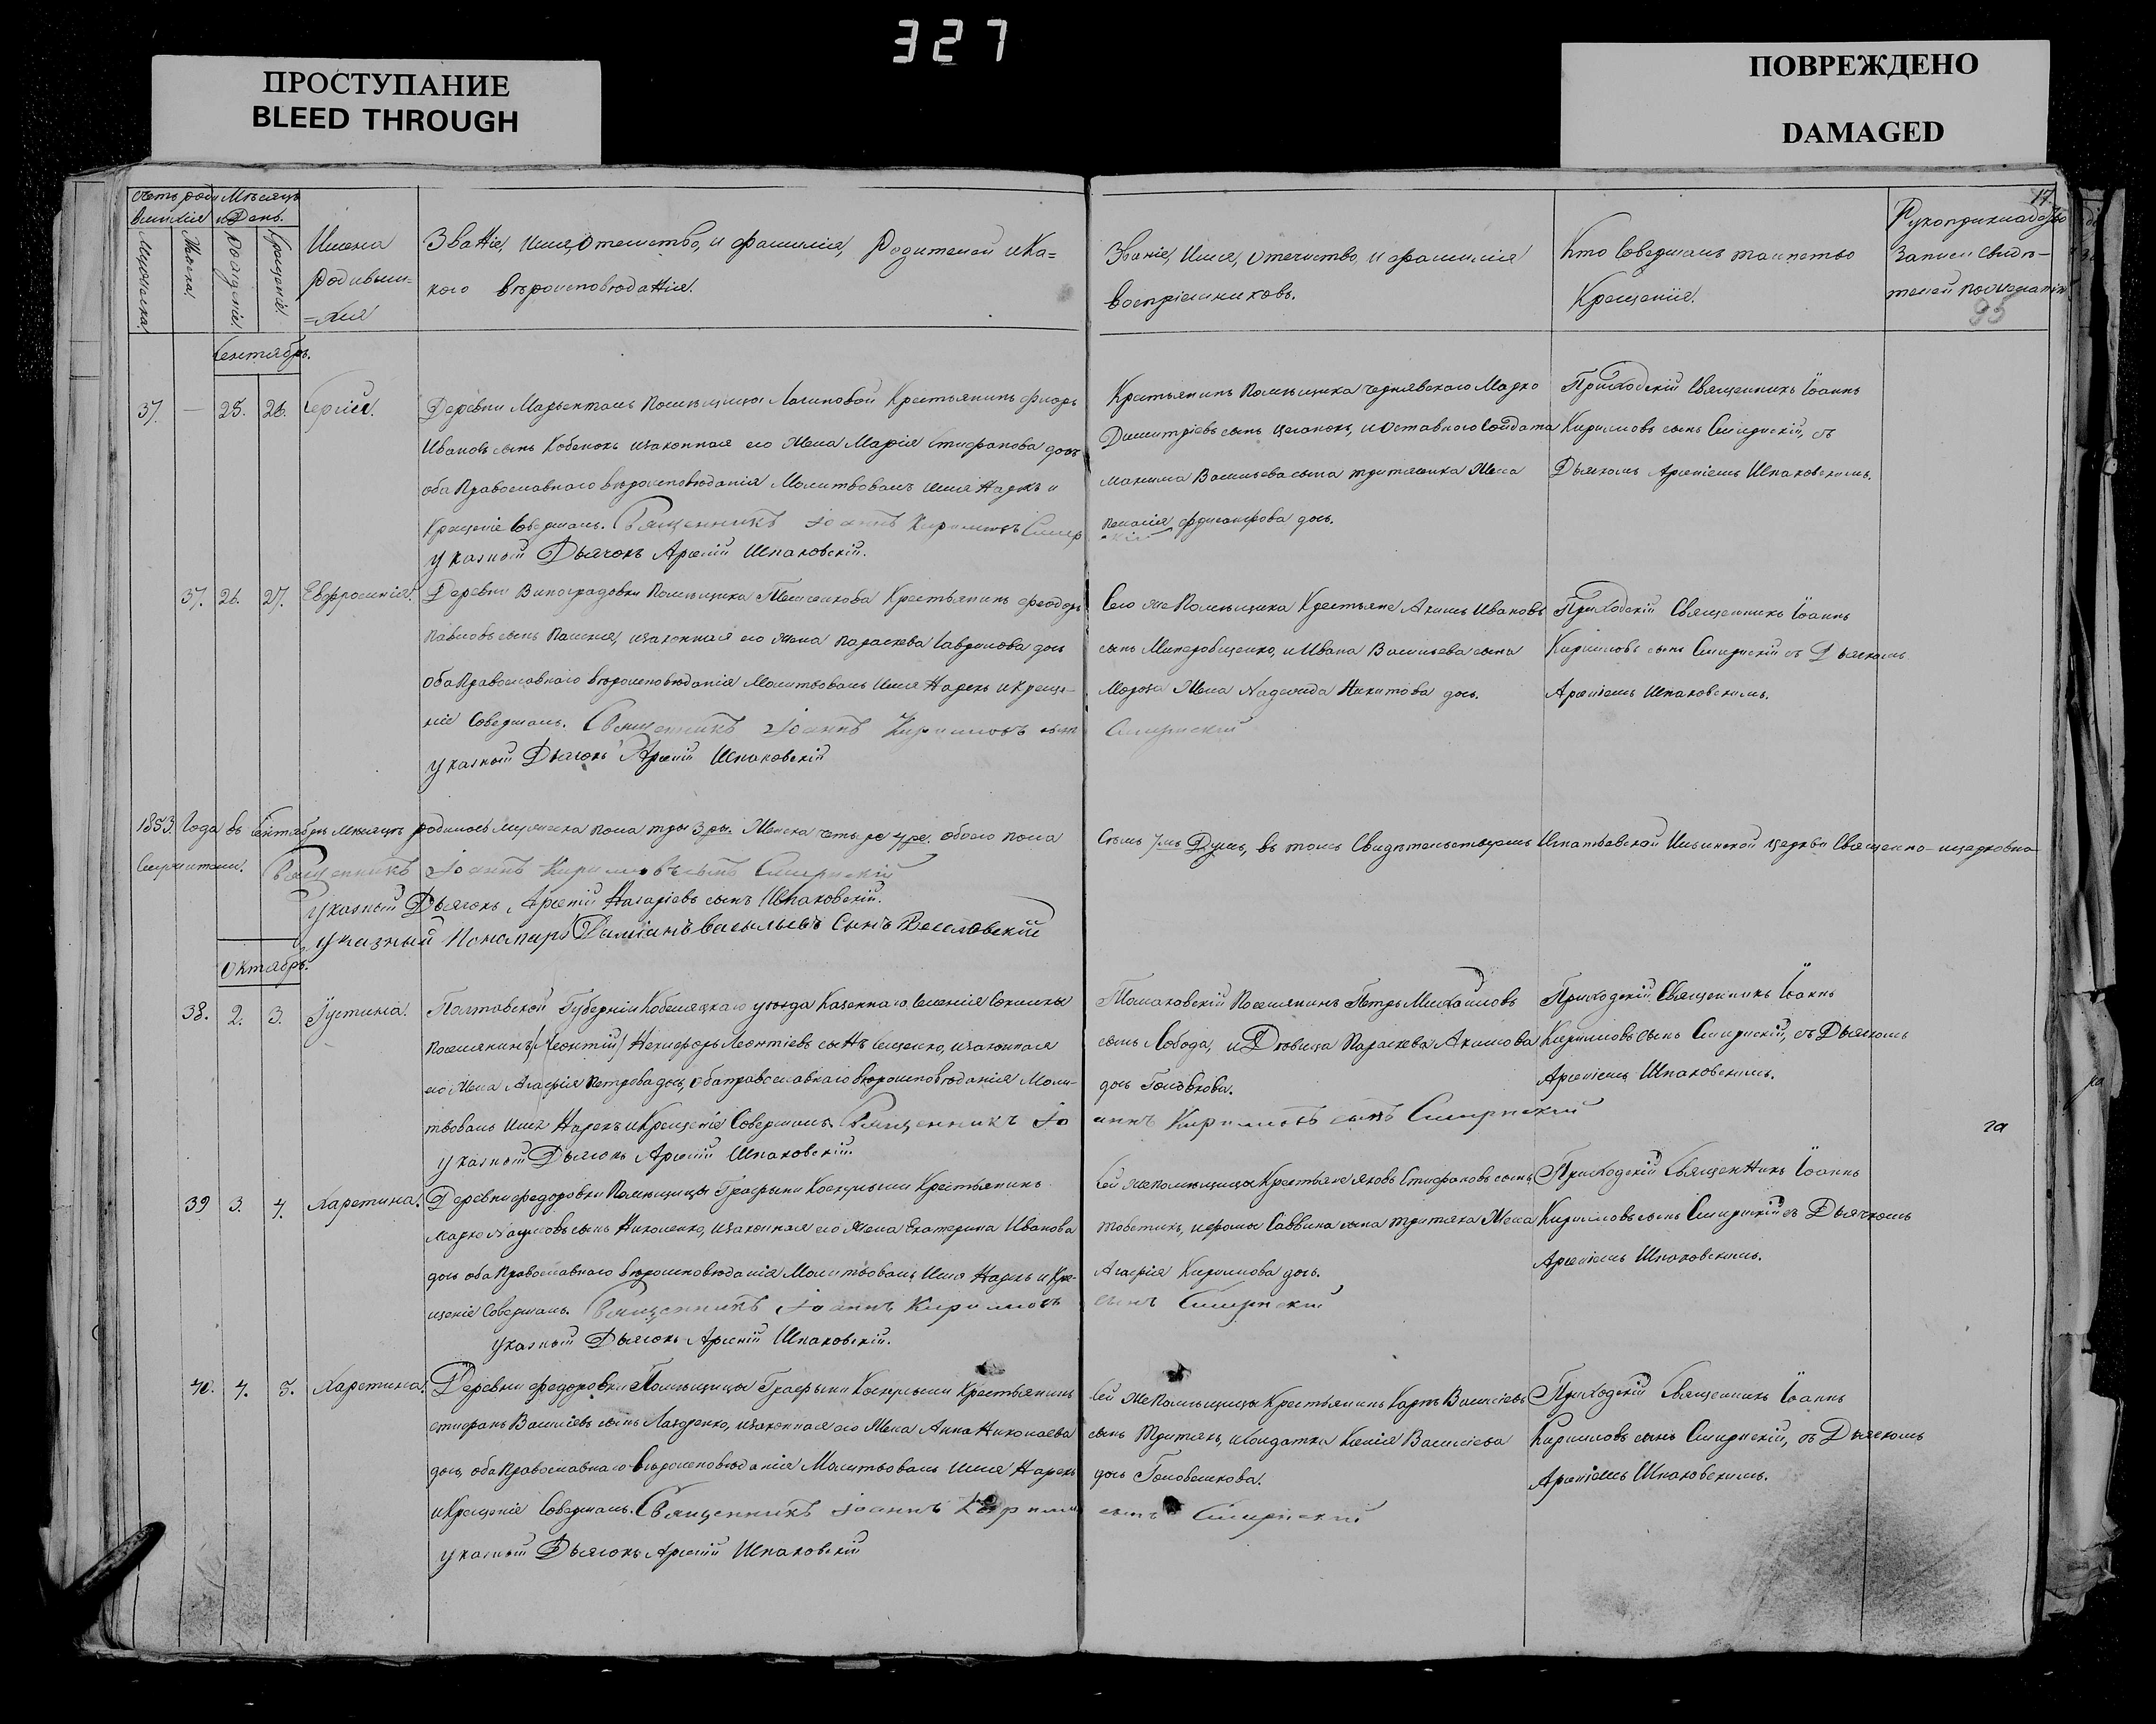 327
ПРОСТУПАНИЕ
BLEED THROUGH
ПОВРЕЖДЕНО
DAMAGED
17
95
Мѣсяцъ
и День.
Мужеска.
Женска.
Рожденiе.
Крещенiе.
Имена
родивши=
=хся
Званiе, Имя, Отечество, и фамилiя, Родителей и Ка=
кого вѣроисповѣданiя.
Званiе, Имя, Отечество, и фамилiя
воспрiемниковъ.
Кто Совершалъ таинство
Крещенiя.
Рукоприкладство
Записи Свидѣ-
телей по желанiю
Сентябрь.
37. — 25. 26. Сергiй.
Деревни Помѣщицы Крестьянинъ
Ивановъ сынъ Кобенокъ и законная его Жена Марiя Стефанова дочь
оба Православнаго вѣроисповѣданiя Молитвовалъ имя Нарекъ и
Крещенiе Совершалъ. Священникъ Iоаннъ Кирилловъ
указный Дьячокъ Арсенiй Шпаковскiй.
Крестьянинъ Помѣщика Чернявскаго Марко
Димитрiевъ сынъ Цеганокъ, и отставнаго Солдата
Васильева сына Жена
дочь.
Приходскiй Священникъ Iоаннъ
Кирилловъ сынъ Смирнскiй, съ
Дьячкомъ Арсенiемъ Шпаковскимъ.
37. 26. 27. Евфросинiя.
Деревни Виноградовки Помѣщика Крестьянинъ Феодоръ
Павловъ сынъ и законная его жена Параскева Гаврилова дочь
оба Православнаго вѣроисповѣданiя Молитвовалъ имя Нарекъ и Креще-
нiе Совершалъ. Священникъ Iоаннъ Кирилловъ сынъ
указный Дьячокъ Арсенiй Шпаковскiй
Сего же Помѣщика Крестьяне Акимъ Ивановъ
сынъ и Ивана Васильева сына
Мороза Жена Надежда Никитова дочь.
Смирнскiй
Приходскiй Священникъ Iоаннъ
Кирилловъ сынъ Смирнскiй съ Дьячкомъ
Арсенiемъ Шпаковскимъ.
1853 Года въ Сентябрѣ мѣсяцѣ родилось мужеска пола три 3 ри. Женска четыре 4 ре. обоего пола
Семь 7мь Душъ, въ томъ Свидѣтельствуемъ Игнатьевской Ильинской церкви Священно-церковно-
служители. Священникъ Iоаннъ Кирилловъ сынъ Смирнскiй
указный Дьячокъ Арсенiй Назарiевъ сынъ Шпаковскiй.
указный Пономарь Дамiанъ Васильевъ Сынъ
Октябрь.
38. 2. 3. Iустина.
Полтавской Губернiи Кобеляцкаго уѣзда Казеннаго Селенiя Сокилки
поселянинъ (Леонтiй) Никифоръ Леонтiевъ сынъ и законная
его Жена Агафiя Петрова дочь, оба православнаго вѣроисповѣданiя Моли-
твовалъ имя Нарекъ и Крещенiе Совершалъ Священникъ Iо
указный Дьячокъ Арсенiй Шпаковскiй.
Томаковскiй Поселянинъ Петръ Михайловъ
сынъ Лобода, и Дѣвица Параскева Акимова
дочь Головкова.
аннъ Кирилловъ сынъ Смирнскiй
Приходскiй Священникъ Iоаннъ
Кирилловъ сынъ Смирнскiй, съ Дьячкомъ
Арсенiемъ Шпаковскимъ.
39 3. 4. Харетина.
Деревни Федоровки Помѣщицы Графыни Крестьянинъ
Марко сынъ Николенко, и законная его Жена Екатерина Иванова
дочь оба Православнаго вѣроисповѣданiя Молитвовалъ Имя Нарекъ и Кре-
щенiе Совершалъ. Священникъ Iоаннъ Кирилловъ
указный Дьячокъ Арсенiй Шпаковскiй.
Сей же помѣщицы Крестьяне Яковъ Стефановъ сынъ
Саввина сына Третяка Жена
Агафiя Кириллова дочь.
сынъ Смирнскiй
Приходскiй Священникъ Iоаннъ
Кирилловъ сынъ Смирнскiй съ Дьячкомъ
Арсенiемъ Шпаковскимъ.
40. 4. 5. Харетина.
Деревни Федоровки Помѣщицы Графыни Крестьянинъ
Стефанъ Василiевъ сынъ Лазаренко, и законная его Жена Анна Николаева
дочь, оба Православнаго вѣроисповѣданiя Молитвовалъ имя Нарекъ
и Крещенiе Совершалъ. Священникъ Iоаннъ
указный Дьячокъ Арсенiй Шпаковскiй
Сей же Помѣщицы Крестьянинъ Карпъ Василiевъ
сынъ Третякъ, и Солдатка Ксенiя Василiева
дочь
сынъ Смирнскiй
Приходскiй Священникъ Iоаннъ
Кирилловъ сынъ Смирнскiй, съ Дьячкомъ
Арсенiемъ Шпаковскимъ.